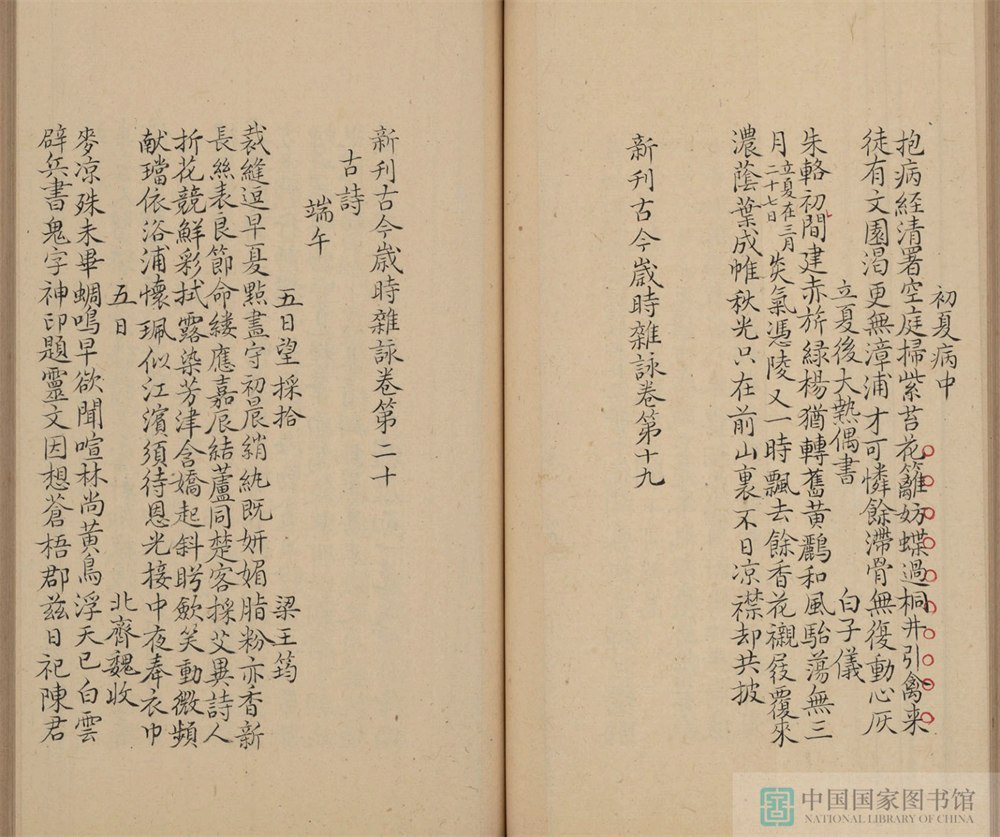 初夏病中
抱病經清署空庭掃紫苔花籬妨蝶過桐井引禽来
徒有文園渴更無漳浦才可憐餘滯骨無復動心灰
立夏後大熱偶書 白子儀
朱輅初間建赤旂綠楊猶轉舊黃鸝和風駘蕩無三
月立夏在三月二十七日炎氣憑陵又一時飄去餘香花襯屐覆來
濃蔭葉成帷秋光只在前山裏不日凉襟却共披
新刊古今歲時雜詠卷第十九
新刊古今歲時雜詠卷第二十
古詩
端午
五日望採拾 梁王筠
裁縫逗早夏點畫守初晨綃紈既妍媚脂粉亦香新
長絲表良節命縷應嘉辰結蘆同楚客採艾異詩人
折花競鮮彩拭露染芳津含嬌起斜眄斂笑動微頻
献璫依浴浦懷珮似江濱須待恩光接中夜奉衣巾
五日 北齊魏收
麥凉殊未畢蜩鳴早欲聞喧林尚黃鳥浮天已白雲
辟兵書鬼字神印題靈文因想蒼梧郡兹日祀陳君
中国国家图书馆
NATIONAL LIBRARY OF CHINA